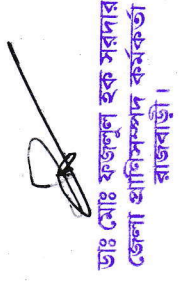 ডাঃ মোঃ ফজলুল হক সরদার
জেলা প্রাণিসম্পদ কর্মকর্তা
রাজবাড়ী।